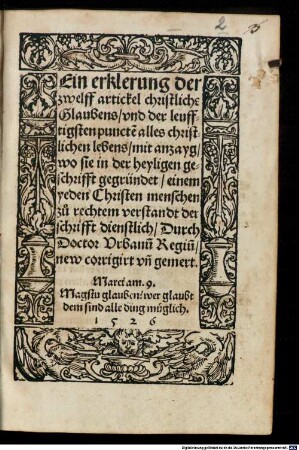 2
Ein erklerung der
zwelff artickel christliche
Glaubens/vnd der leuff-
tigsten punctē alles christ
lichen lebens/mit anzayg/
wo sie in der heyligen ge-
schrifft gegründet/einem
yeden Christen menschen
zů rechtem verstandt der
schrifft dienstlich/Durch
Doctor Vrbanū Regiū/
new corrigirt vñ gemert.
Marci am. 9.
Magstu glauben? wer glaubt
dem sind alle ding müglich.
1526